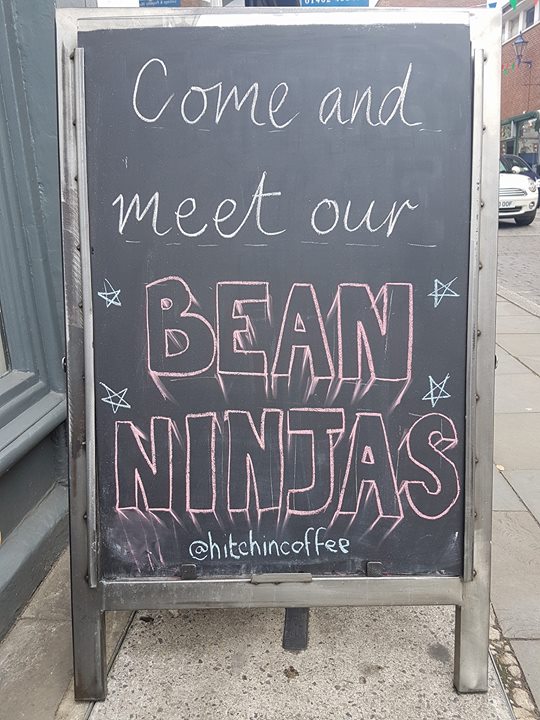 Come and
meet our
BEAN
NINJAS
@hitchincoffee